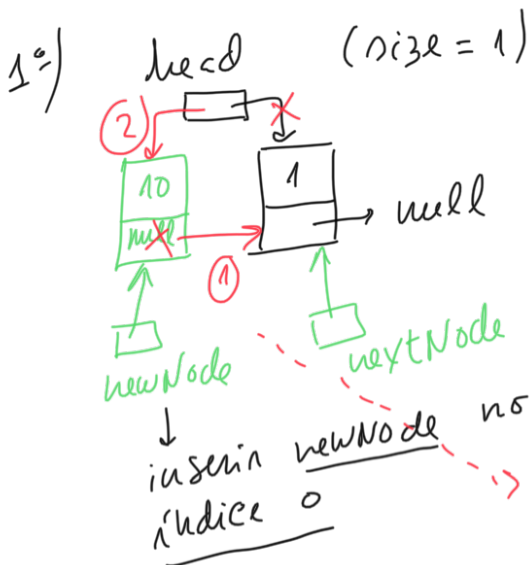 1º) head (size = 1)
2
10 1
null null
1
newNode nextNode
inserir newNode no
índice 0